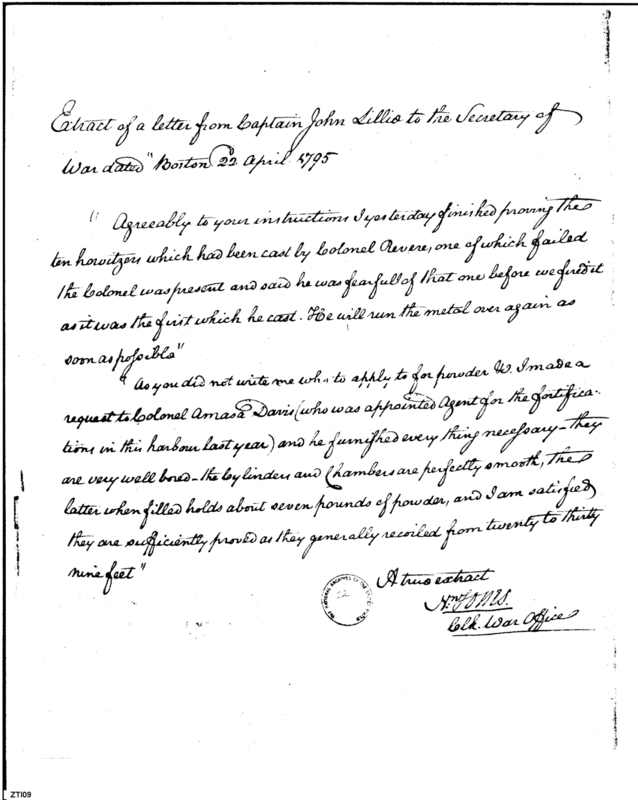 Extract of a letter from Captain John Lillie to the Secretary of
War dated "Boston 22d April 1795
" Agreeably to your instructions I yesterday finished proving the
ten howitzers which had been cast by Colonel Revere, one of which failed
the Colonel was present and said he was fearfull of that one before we fired it
as it was the first which he cast. He will run the metal over again as
soon as possible"
" As you did not write me who to apply to for powder &c. I made a
request to Colonel Amasa Davis (who was appointed Agent for the fortifica-
tions in this harbour last year) and he furnished every thing necessary - they
are very well bored - the Cylinders and Chambers are perfectly smooth, the
latter when filled holds about seven pounds of powder, and I am satisfied
they are sufficiently proved as they generally recoiled from twenty to thirty
nine feet"
A true extract
Jones.
Clk. War Office
ZTI09